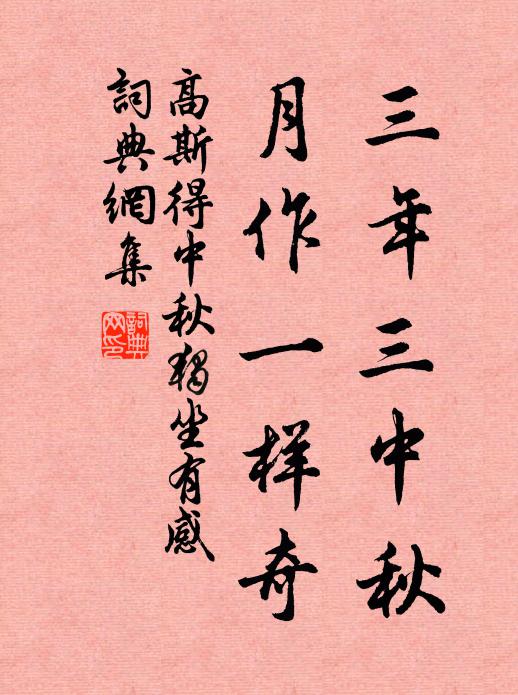 三年三中秋
月作一样奇
高斯得中秋獨坐有感
詞典網集
詞典
网印